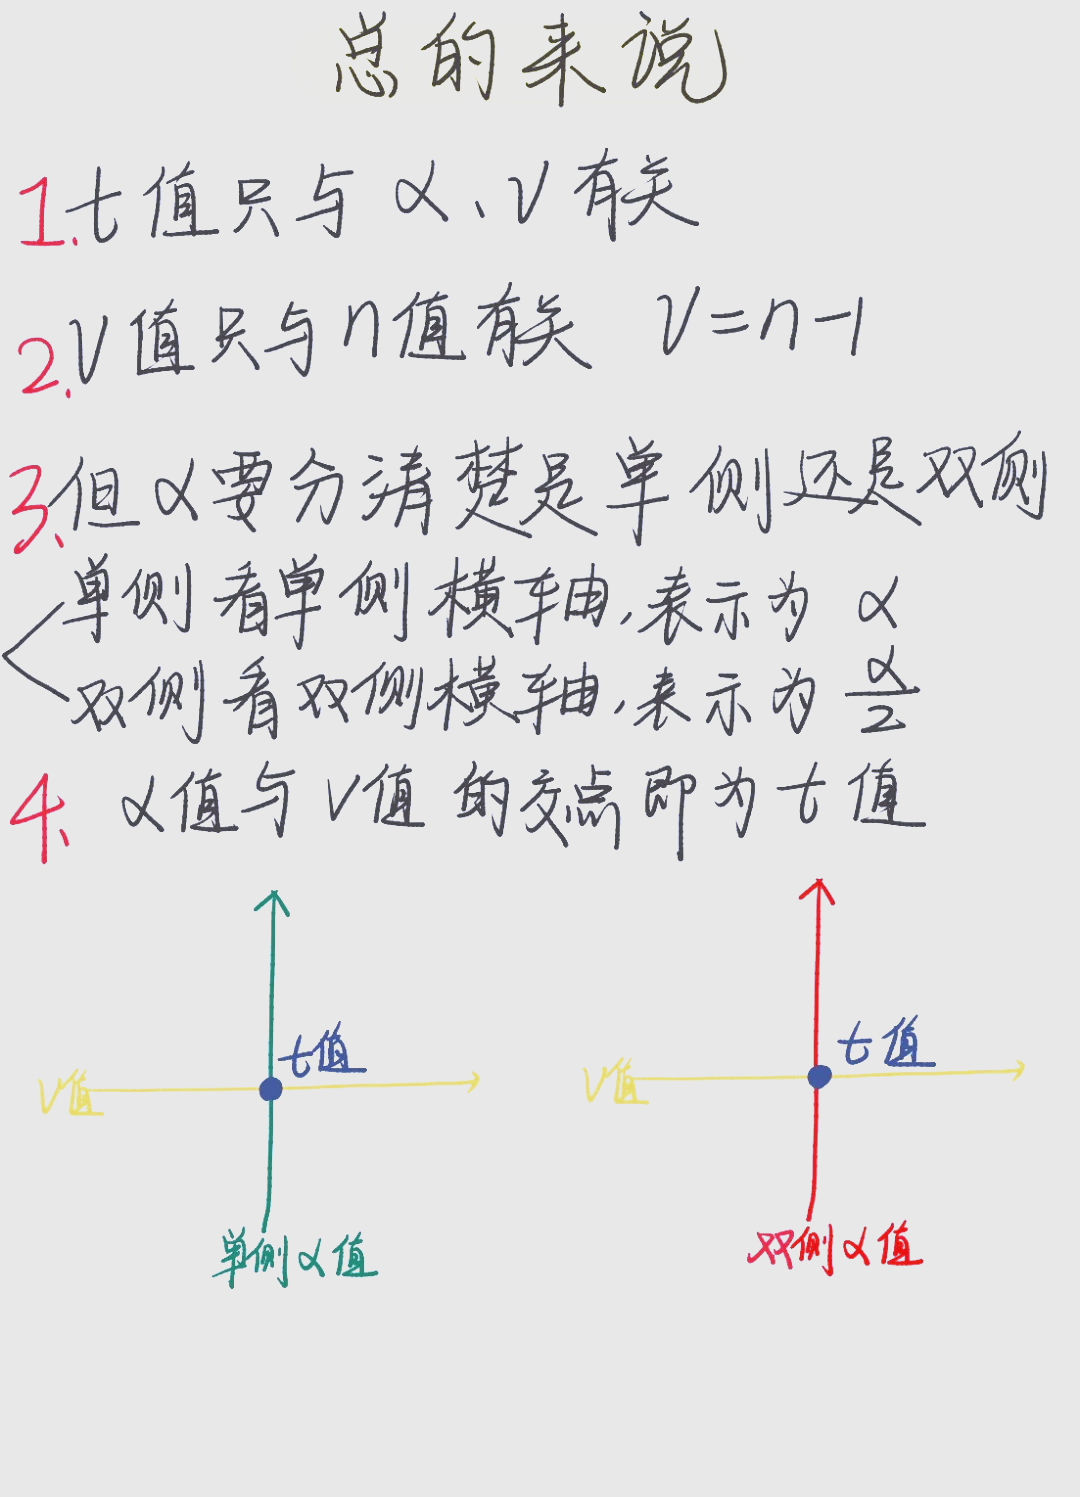 总的来说
1.t值只与α、ν有关
2.ν值只与n值有关 ν=n-1
3、但α要分清楚是单侧还是双侧
单侧看单侧横轴,表示为 α
双侧看双侧横轴,表示为 α/2
4、α值与ν值的交点即为t值
t值 t值
ν值 ν值
单侧α值 双侧α值